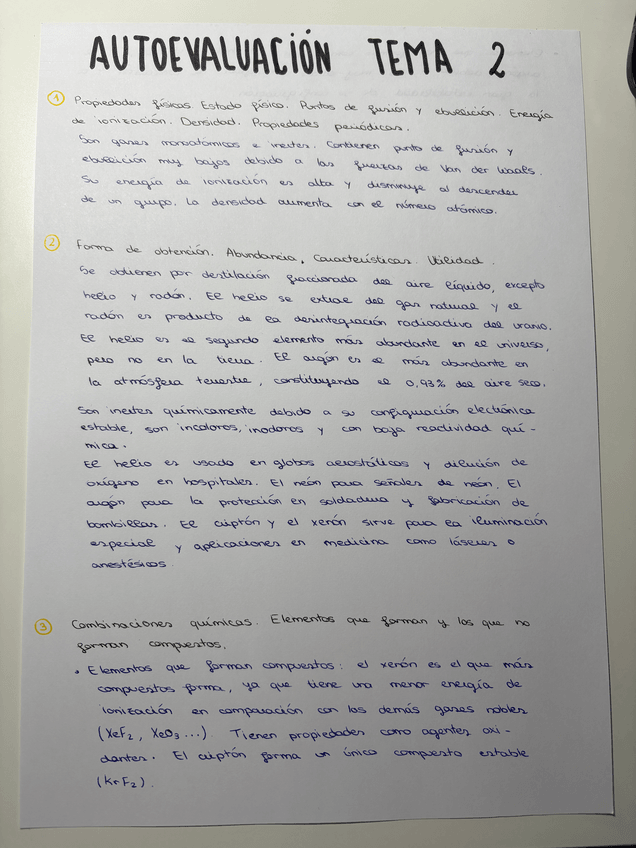 AUTOEVALUACIÓN TEMA 2
1 Propiedades físicas. Estado físico. Puntos de fusión y ebullición. Energía
de ionización. Densidad. Propiedades periódicas.
Son gases monoatómicos e inertes. Contienen punto de fusión y
ebullición muy bajos debido a las fuerzas de Van der Waals.
Su energía de ionización es alta y disminuye al descender
de un grupo. La densidad aumenta con el número atómico.
2 Forma de obtención. Abundancia, Características. Utilidad.
Se obtienen por destilación fraccionada del aire líquido, excepto
helio y radón. El helio se extrae del gas natural y el
radón es producto de la desintegración radioactiva del uranio.
El helio es el segundo elemento más abundante en el universo,
pero no en la tierra. El argón es el más abundante en
la atmósfera terrestre, constituyendo el 0,93% del aire seco.
Son inertes químicamente debido a su configuración electrónica
estable, son incoloros, inodoros y con baja reactividad quí-
mica.
El helio es usado en globos aerostáticos y dilución de
oxígeno en hospitales. El neón para señales de neón. El
argón para la protección en soldadura y fabricación de
bombillas. El criptón y el xenón sirve para la iluminación
especial y aplicaciones en medicina como láseres o
anestésicos
3 Combinaciones químicas. Elementos que forman y los que no
forman compuestos.
• Elementos que forman compuestos: el xenón es el que más
compuestos forma, ya que tiene una menor energía de
ionización en comparación con los demás gases nobles
(XeF₂, XeO₃...). Tienen propiedades como agentes oxi-
dantes. El criptón forma un único compuesto estable
(KrF₂).